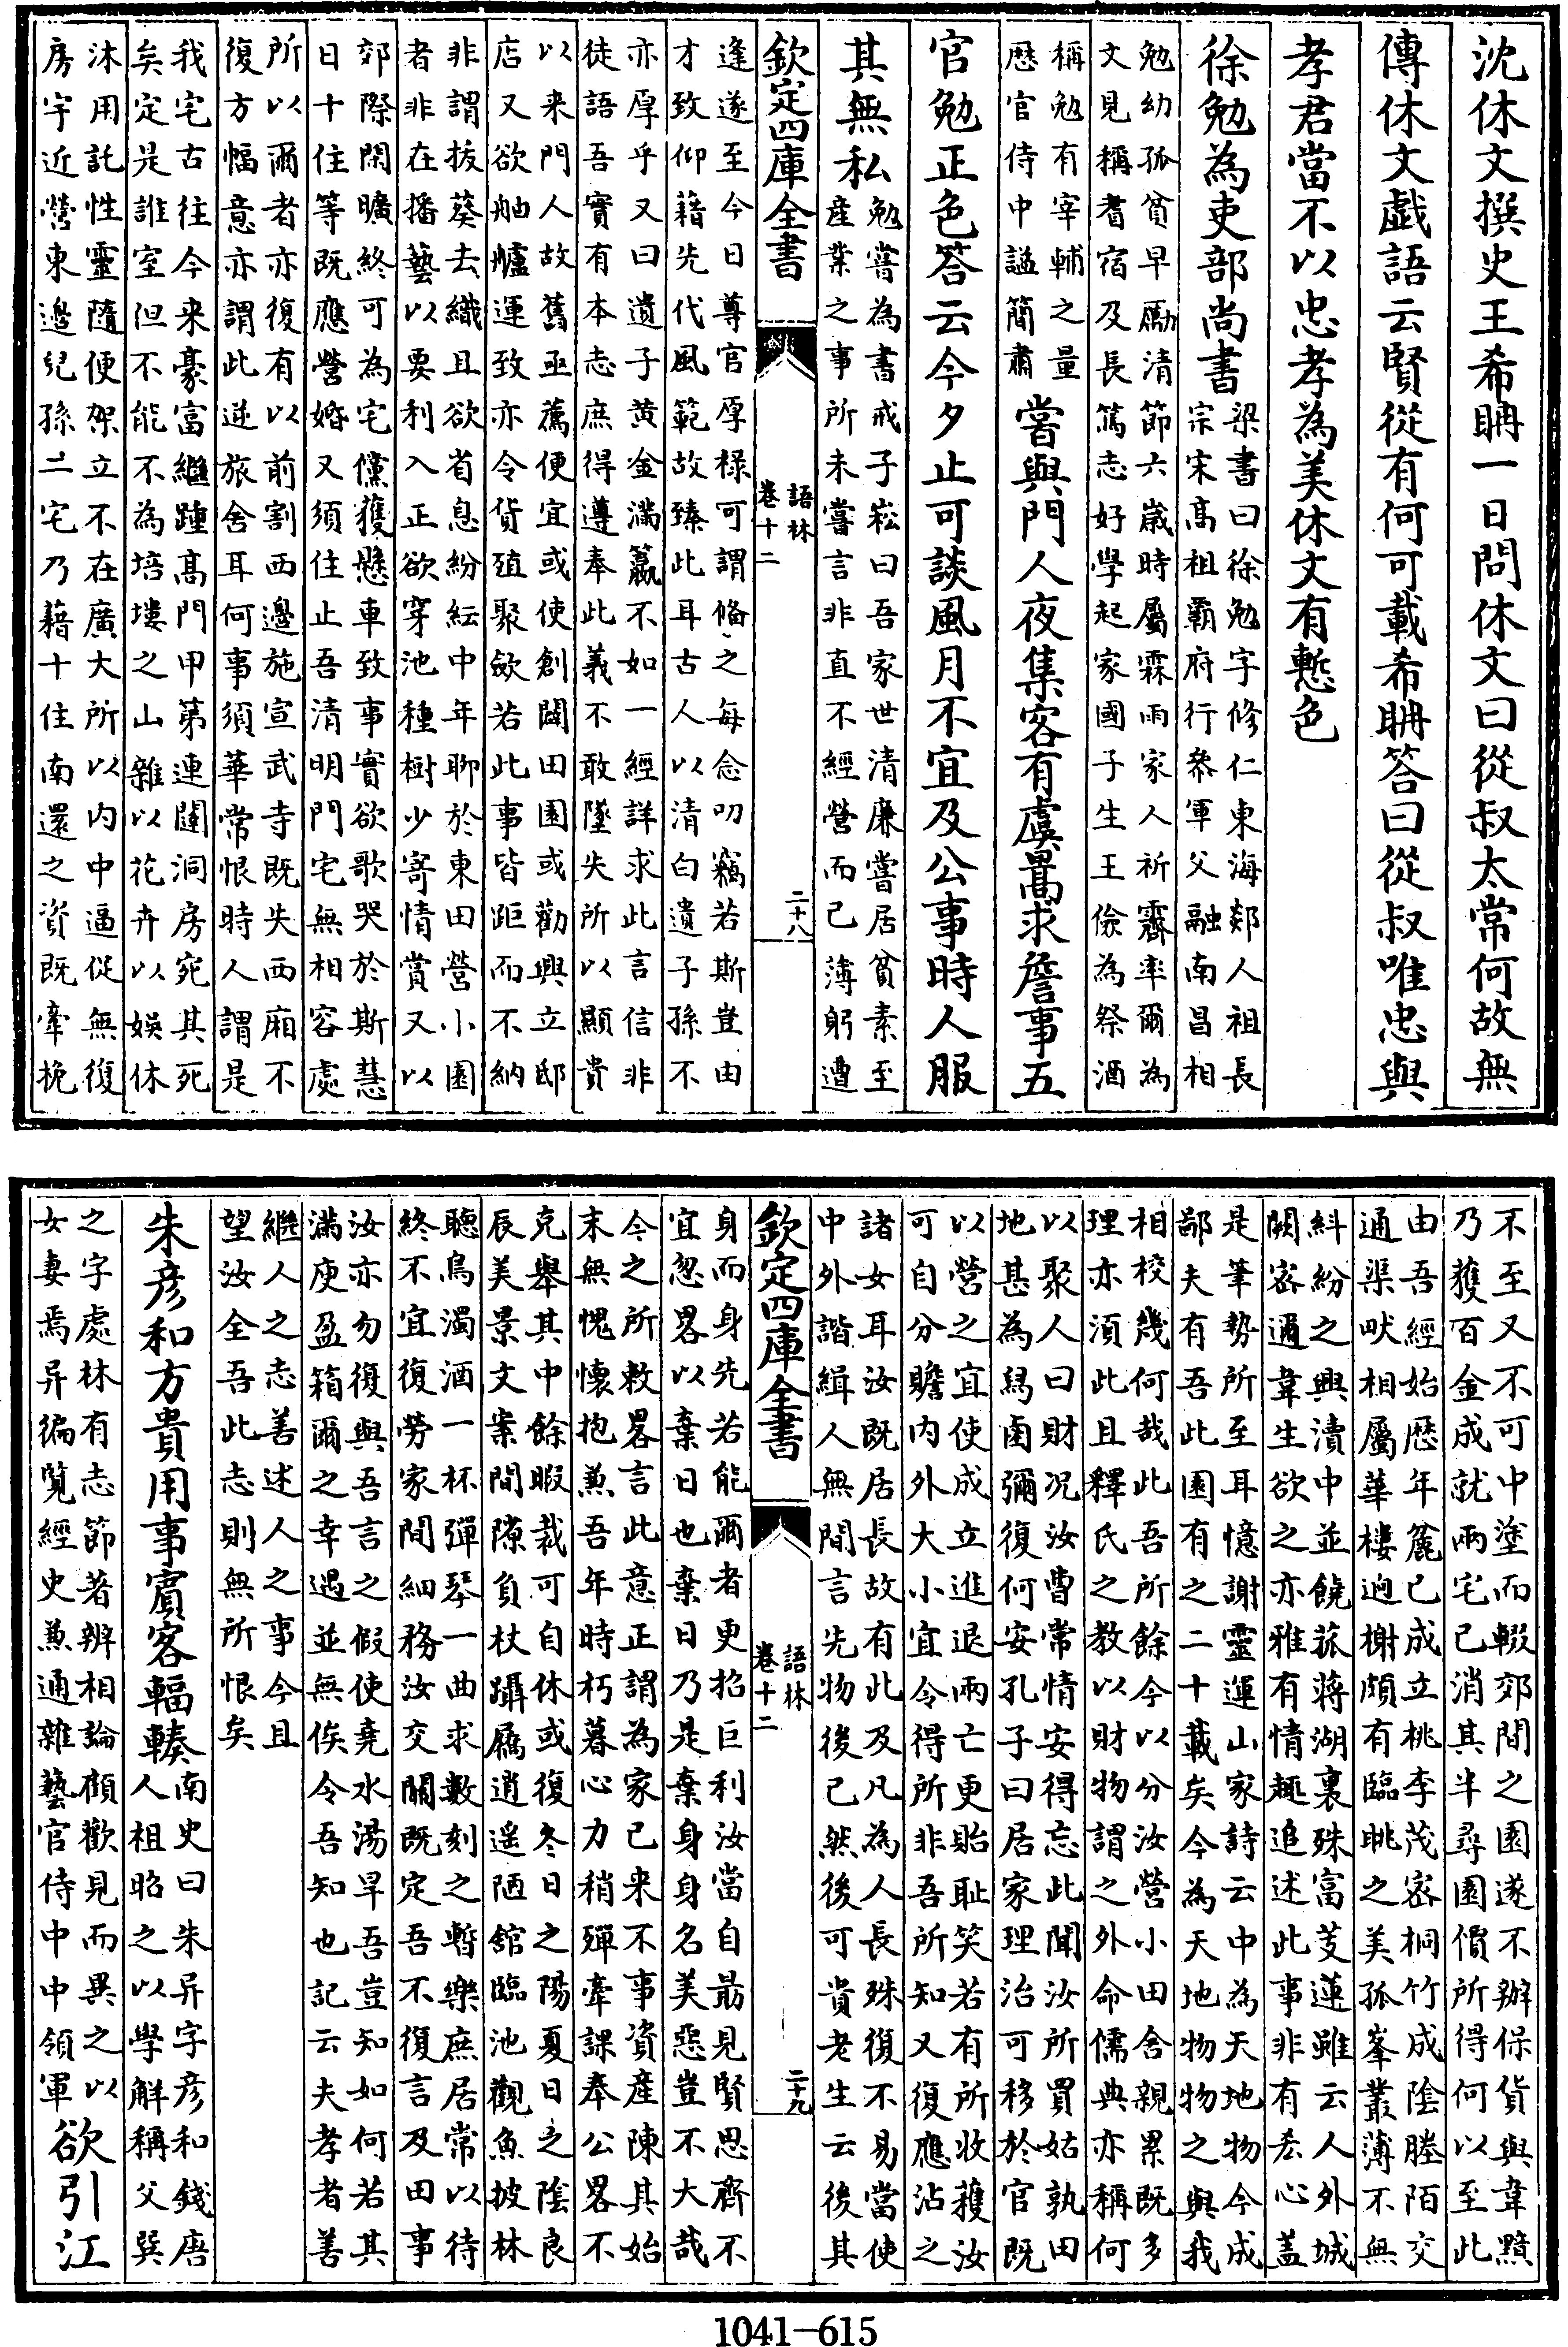 沈休文撰史王希聃一日問休文曰從叔太常何故無
傳休文戲語云賢從有何可載希聃答曰從叔唯忠與
孝君當不以忠孝為美休文有慙色
徐勉為吏部尚書
梁書曰徐勉字修仁東海郯人祖長
宗宋髙祖霸府行參軍父融南昌相
勉幼孤貧早勵清節六嵗時屬霖雨家人祈霽率爾為
文見稱耆宿及長篤志好學起家國子生王儉為祭酒
稱勉有宰輔之量
歴官侍中諡簡肅
嘗與門人夜集客有虞暠求詹事五
官勉正色答云今夕止可談風月不宜及公事時人服
其無私
勉嘗為書戒子崧曰吾家世清廉嘗居貧素至
産業之事所未嘗言非直不經營而已薄躬遭
欽定四庫全書
語林
卷十二
二十八
逢遂至今日尊官厚禄可謂備之每念叨竊若斯豈由
才致仰藉先代風範故臻此耳古人以清白遺子孫不
亦厚乎又曰遺子黄金滿籯不如一經詳求此言信非
徒語吾實有本志庶得遵奉此義不敢墜失所以顯貴
以来門人故舊亟薦便宜或使創闢田園或勸興立邸
店又欲舳艫運致亦令貨殖聚歛若此事皆距而不納
非謂拔葵去織且欲省息紛紜中年聊於東田營小園
者非在播藝以要利入正欲穿池種樹少寄情賞又以
郊際閑曠終可為宅儻獲懸車致事實欲歌哭於斯慧
日十住等既應營婚又須住止吾清明門宅無相容處
所以爾者亦復有以前割西邊施宣武寺既失西廂不
復方幅意亦謂此逆旅舍耳何事須華常恨時人謂是
我宅古往今来豪富繼踵髙門甲第連闥洞房宛其死
矣定是誰室但不能不為培塿之山雜以花卉以娛休
沐用託性靈隨便架立不在廣大所以内中逼從無復
房宇近營東邊兒孫二宅乃藉十住南還之資既牽挽
不至又不可中塗而輟郊間之園遂不辦保貨與韋黯
乃獲百金成就兩宅已消其半尋園價所得何以至此
由吾經始歴年麄已成立桃李茂宻桐竹成陰塍陌交
通渠畎相屬華樓迥榭頗有臨眺之美孤峯叢薄不無
糾紛之興瀆中並饒菰蔣湖裏殊富芰蓮雖云人外城
闕宻邇韋生欲之亦雅有情趣追述此事非有吝心蓋
是筆勢所至耳憶謝靈運山家詩云中為天地物今成
鄙夫有吾此園有之二十載矣今為天地物物之與我
相校幾何哉此吾所餘今以分汝營小田舍親累既多
理亦須此且釋氏之教以財物謂之外命儒典亦稱何
以聚人曰財况汝曹常情安得忘此聞汝所買姑孰田
地甚為舄鹵彌復何安孔子曰居家理治可移於官既
以營之宜使成立進退兩亡更貽恥笑若有所收穫汝
可自分贍内外大小宜令得所非吾所知又復應沾之
諸女耳汝既居長故有此及凡為人長殊復不易當使
中外諧緝人無間言先物後已然後可貴老生云後其
欽定四庫全書
語林
卷十二
二十九
身而身先若能爾者更招巨利汝當自朂見賢思齊不
宜忽畧以棄日也棄日乃是棄身身名美惡豈不大哉
今之所敕畧言此意正謂為家已来不事資產陳其始
末無愧懷抱兼吾年時朽暮心力稍殫牽課奉公畧不
克舉其中餘暇裁可自休或復冬日之陽夏日之陰良
辰美景文案間隙負杖躡屩逍遥陋舘臨池觀魚披林
聽鳥濁酒一杯彈琴一曲求數刻之暫樂庶居常以待
終不宜復勞家間細務汝交關既定吾不復言及田事
汝亦勿復與吾言之假使堯水湯旱吾豈知如何若其
滿庾盈箱爾之幸遇並無俟令吾知也記云夫孝者善
繼人之志善述人之事今且
望汝全吾此志則無所恨矣
朱彦和方貴用事賔客輻輳
南史曰朱异字彦和錢唐
人祖昭之以學解稱父巽
之字處林有志節著辨相論顧歡見而異之以
女妻焉异徧覽經史兼通雜藝官侍中中領軍
欲引江
1041—615